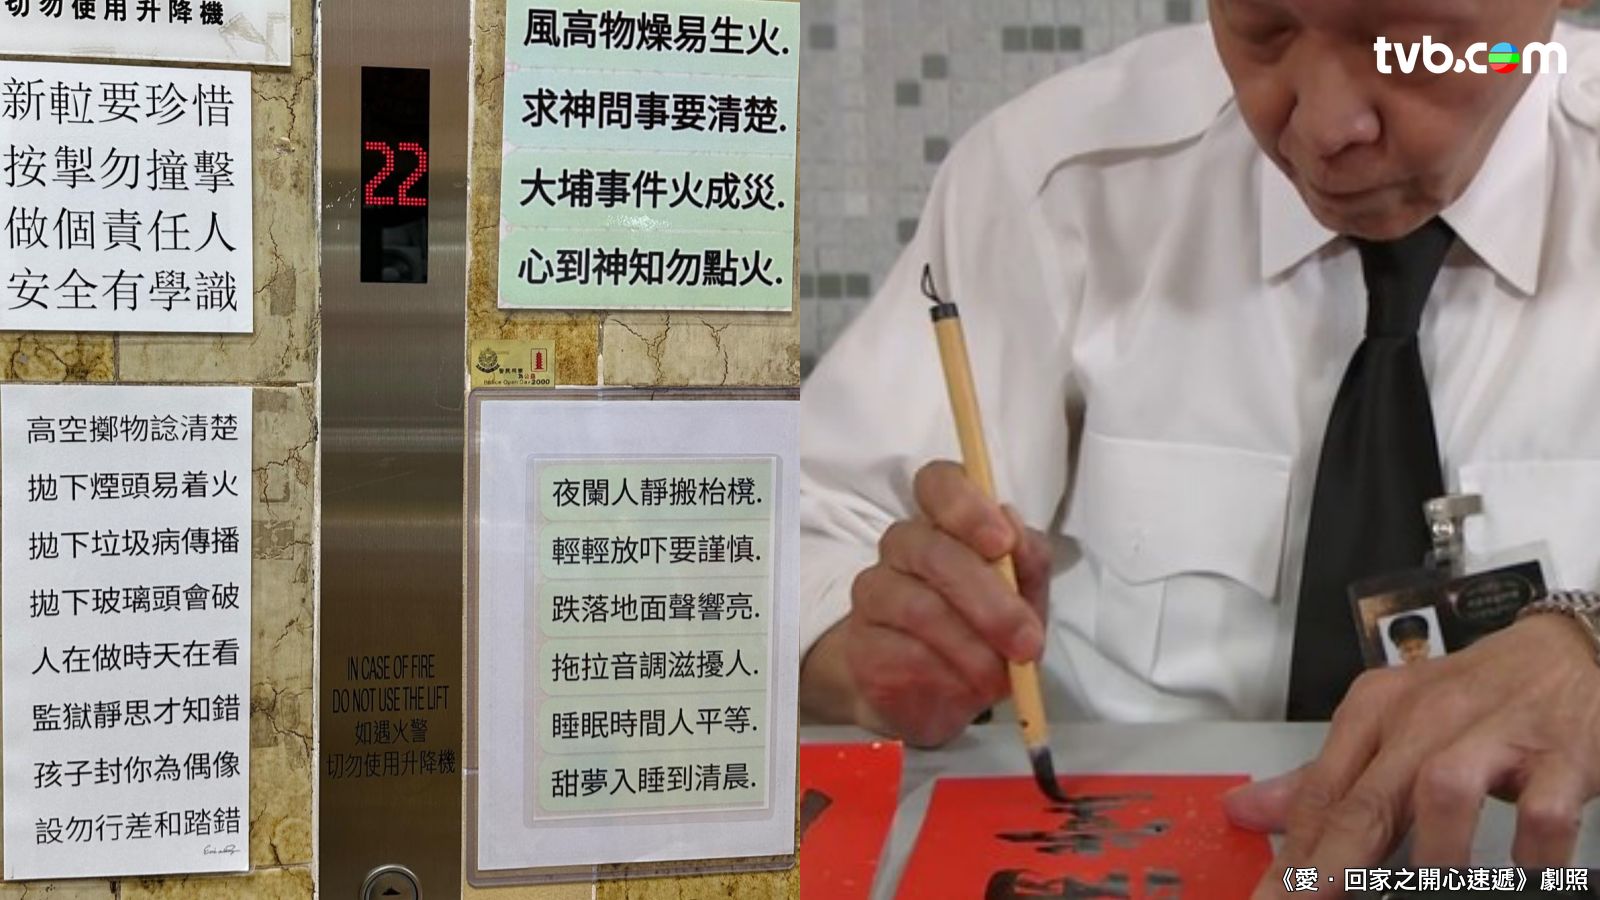 切勿使用升降機
新𨋢要珍惜
按掣勿撞擊
做個責任人
安全有學識
高空擲物諗清楚
拋下煙頭易着火
拋下垃圾病傳播
拋下玻璃頭會破
人在做時天在看
監獄靜思才知錯
孩子封你為偶像
設勿行差和踏錯
22
IN CASE OF FIRE
DO NOT USE THE LIFT
如遇火警
切勿使用升降機
風高物燥易生火.
求神問事要清楚.
大埔事件火成災.
心到神知勿點火.
Police Open Day 2000
夜闌人靜搬枱櫈.
輕輕放吓要謹慎.
跌落地面聲響亮.
拖拉音調滋擾人.
睡眠時間人平等.
甜夢入睡到清晨.
tvb.com
《愛．回家之開心速遞》劇照